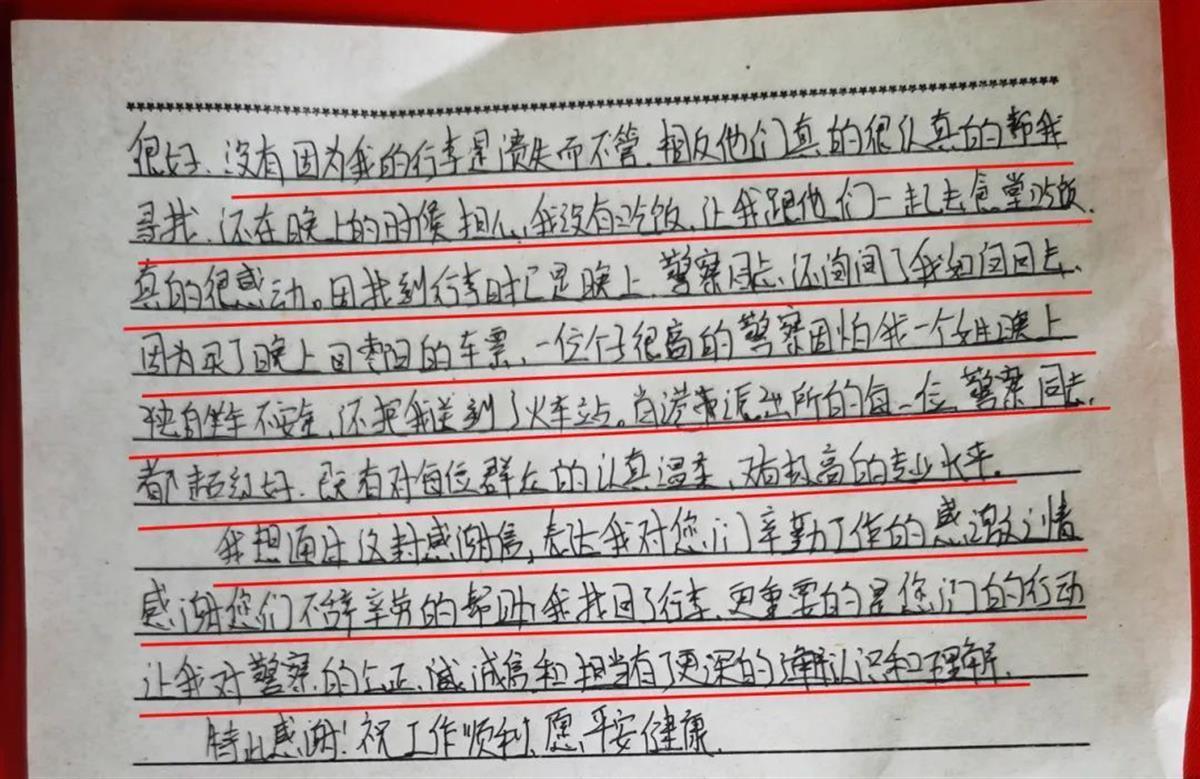 很好、没有因为我的行李是遗失而不管、相反他们真的很认真的帮我
寻找、还在晚上的时候担心我没有吃饭、让我跟他们一起去食堂吃饭、
真的很感动。因找到行李时已是晚上、警察同志、还询问了我如何回去、
因为买了晚上回枣阳的车票、一位个子很高的警察因怕我一个女生晚上
独自坐车不安全、还把我送到了火车站。肖港派出所的每一位警察同志、
都超级好、既有对每位群众的认真温柔、又有极高的专业水平。
我想通过这封感谢信、表达我对您们辛勤工作的感激之情
感谢您们不辞辛劳的帮助我找回了行李、更重要的是您们的行动
让我对警察的公正、诚信和担当有了更深的认识和理解、
特此感谢！祝工作顺利、愿平安健康、